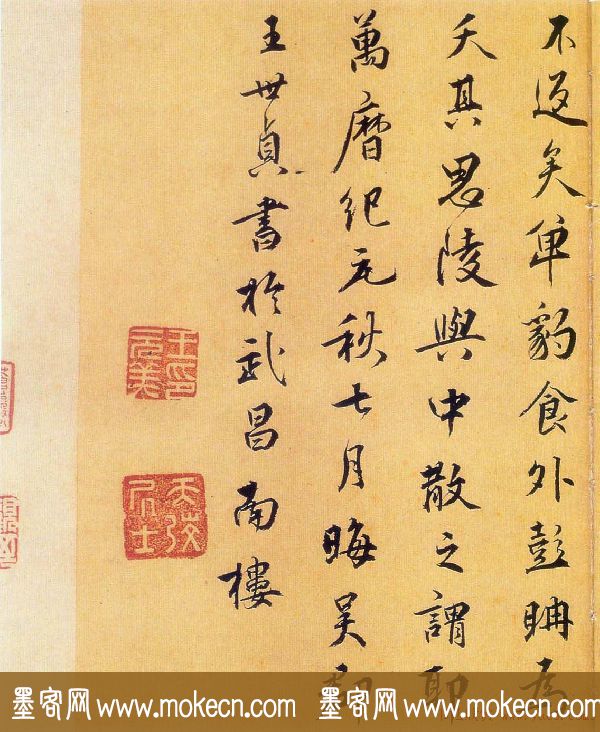 不返矣单豹食外彭聃為
夭其思陵與中散之謂耶
萬曆纪元秋七月晦吴郡
王世貞書於武昌南樓
王氏元美
天弢居士
墨客网 www.mokecn.com 墨客网 www.mokecn.com